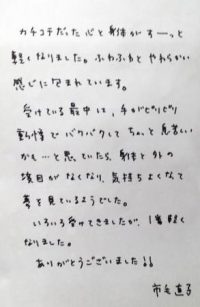 カチコチだった心と身体がすーっと
軽くなりました。ふわふわとやわらかい
感じに包まれています。
受けている最中は、手がビリビリ
動悸でバクバクしてちょっと危ない
かも…と思っていたら、身体と外の
境目がなくなり、気持ちよくなって
夢を見ているようでした。
いろいろ受けてきましたが、1番軽く
なりました。
ありがとうございました!!
市毛 直子